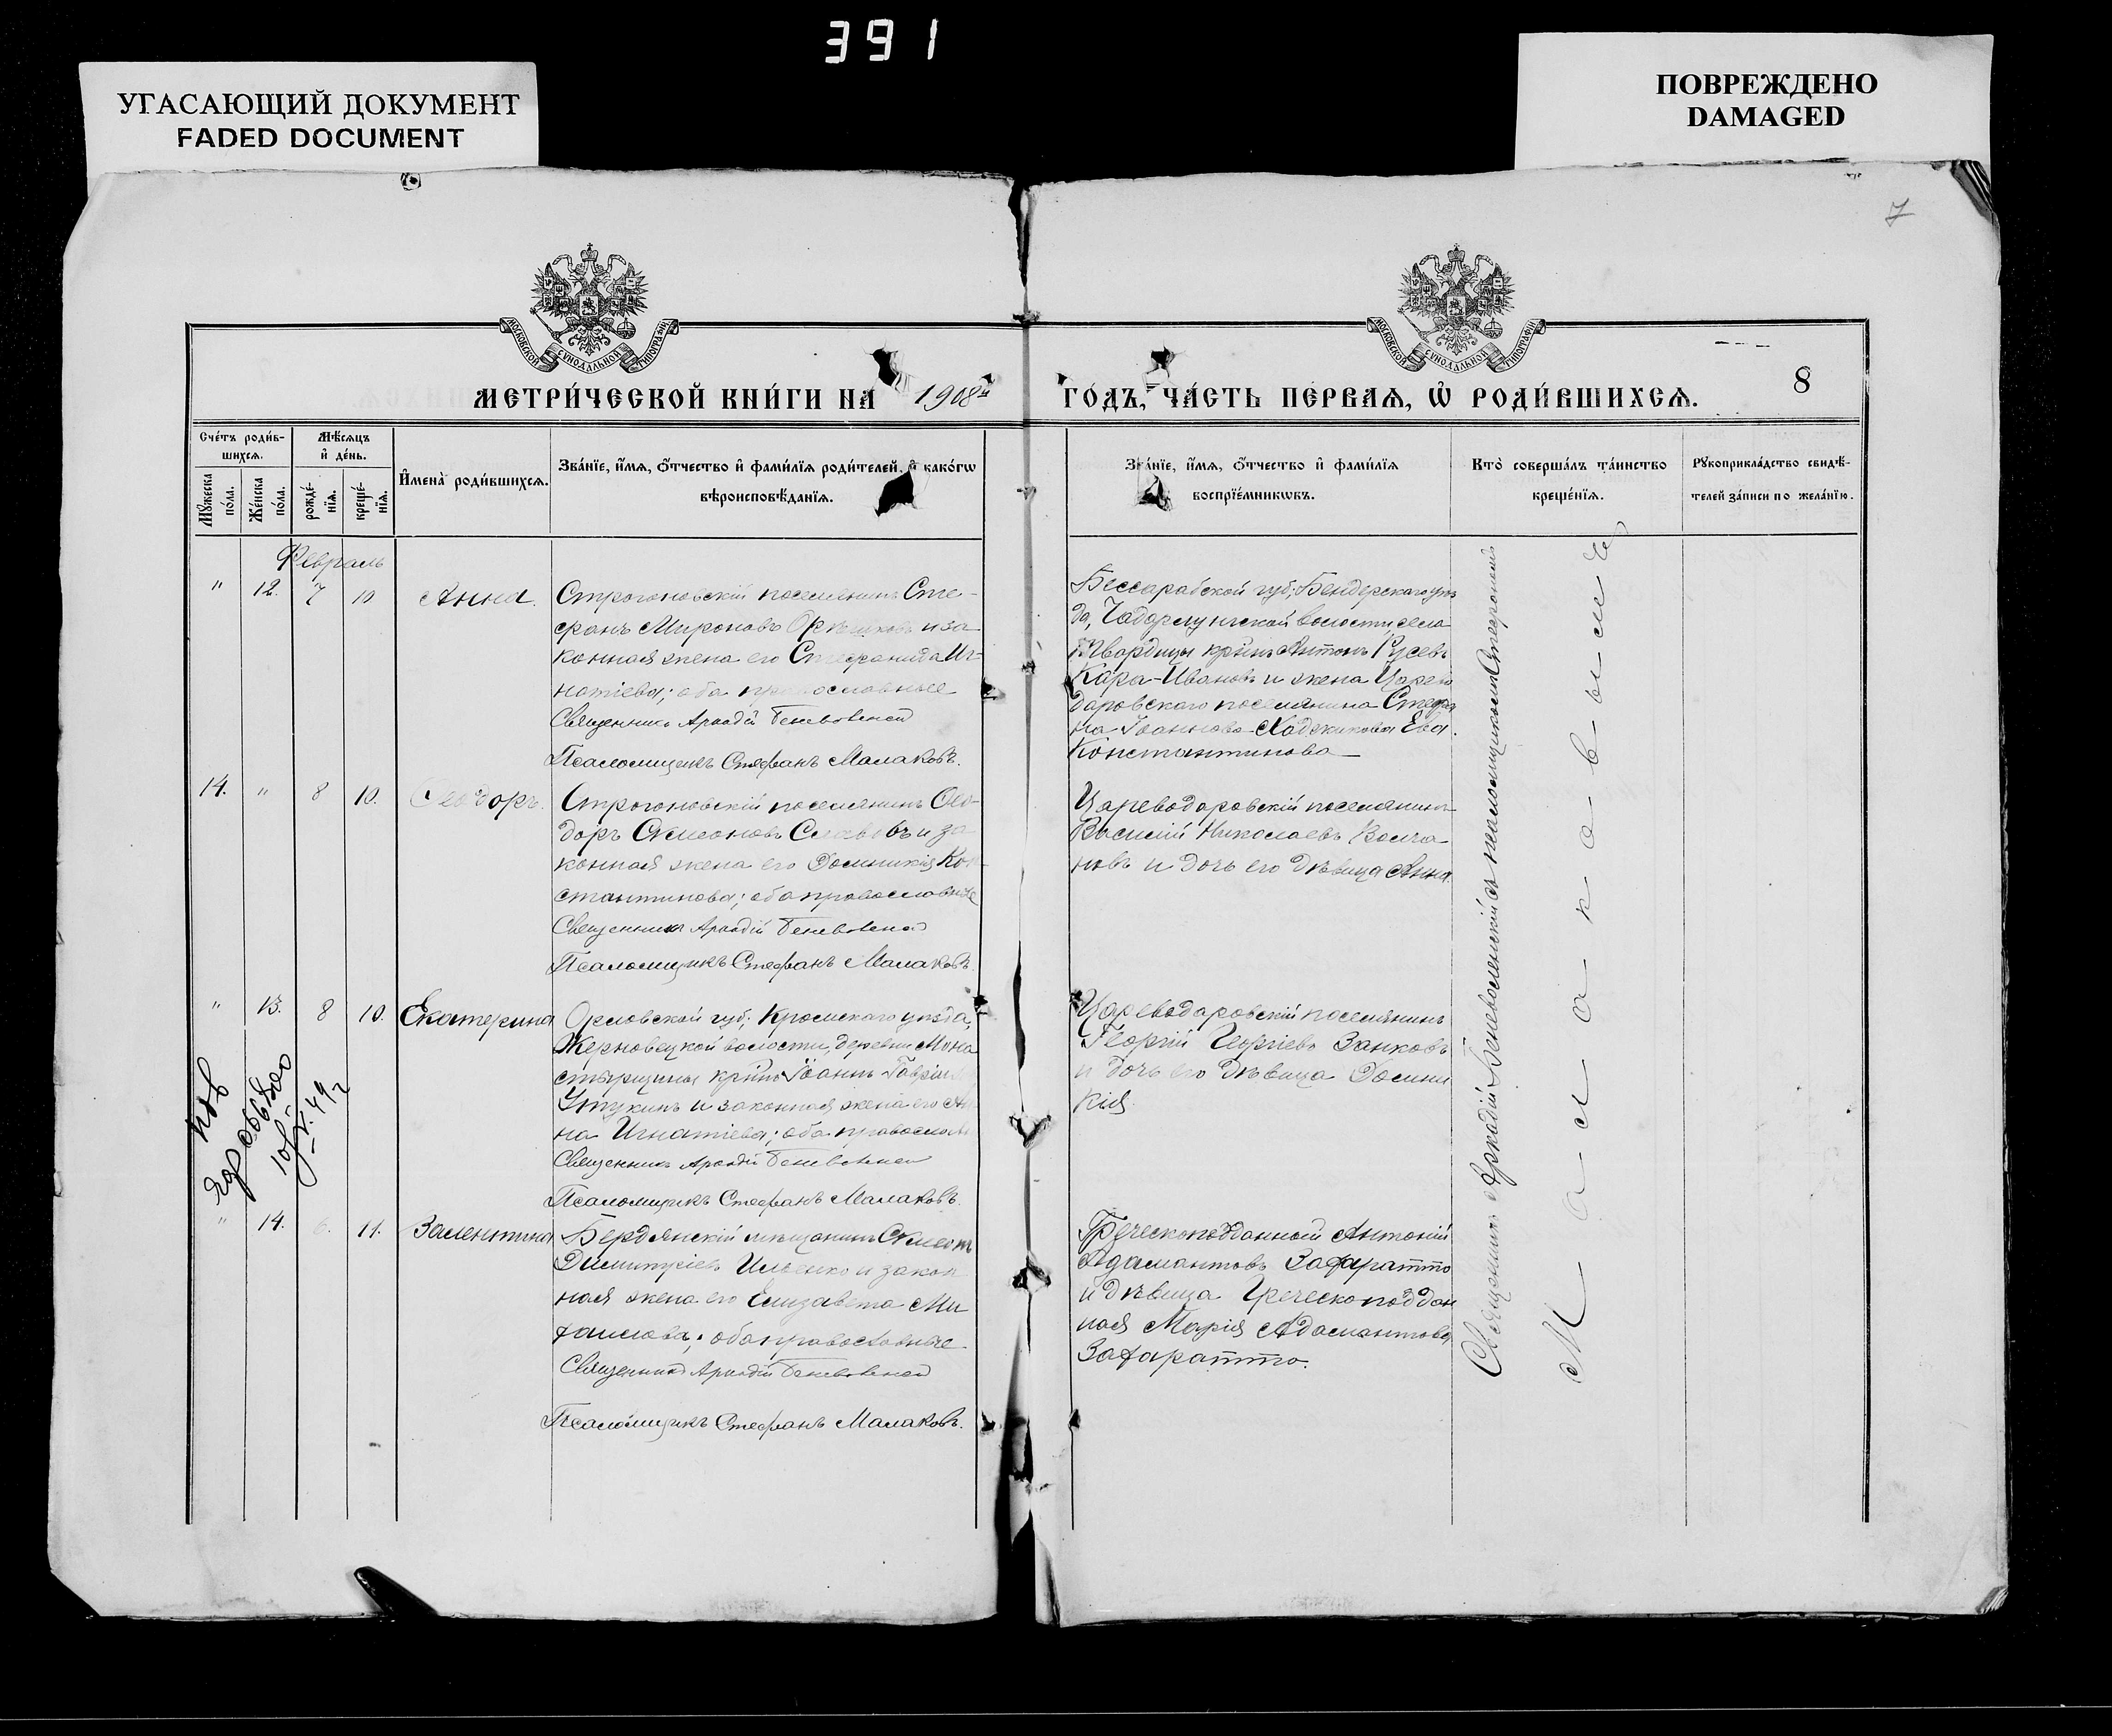 391
УГАСАЮЩИЙ ДОКУМЕНТ
FADED DOCUMENT
ПОВРЕЖДЕНО
DAMAGED
7
МОСКОВСКОЙ СУНОДАЛЬНОЙ ТИПОГРАФІИ
МОСКОВСКОЙ СУНОДАЛЬНОЙ ТИПОГРАФІИ
МЕТРИ́ЧЕСКОЙ КНИ́ГИ НА 1908й
ГО́ДЪ, ЧА́СТЬ ПЕ́РВАѦ, Ѡ҆ РОДИ́ВШИХСѦ.
8
Сче́тъ роди́в-
шихсѧ.
Мꙋ́жеска по́ла.
Же́нска по́ла.
Мѣ́сѧцъ
и҆ де́нь.
рожде́-
нїѧ.
креще́-
нїѧ.
И҆мена̀ роди́вшихсѧ.
Зва́нїе, и҆́мѧ, ѻ҆́тчество и҆ фами́лїѧ роди́телей, и҆ како́гѡ
вѣроисповѣ́данїѧ.
Зва́нїе, и҆́мѧ, ѻ҆́тчество и҆ фами́лїѧ
воспрїе́мникѡвъ.
Кто̀ соверша́лъ та́инство
креще́нїѧ.
Рꙋкоприкла́дство свидѣ́-
телей за́писи по жела́нїю.
Февраль
" 12. 7 10 Анна.
Строгоновскій поселянинъ Сте-
фанъ Мироновъ Орѣшковъ и за
конная жена его Стефанида Иг-
натіева; оба православные
Священникъ Аркадій Беневоленскій
Псаломщикъ Стефанъ Малаковъ.
Бессарабской губ; Бендерскаго уѣз
да, Чадарлунгской волости, села
Твардицы крⷭ҇нъ Антонъ Русевъ
Кара-Ивановъ и жена Царево
даровскаго поселянина Стефа
на Іоаннова Хаджинова Ева
Константинова
14. " 8 10. Ѳеодоръ.
Строгоновскій поселянинъ Ѳео-
доръ Симеоновъ Славовъ и за
конная жена его Домникія Кон-
стантинова; оба православные
Священникъ Аркадій Беневоленскій
Псаломщикъ Стефанъ Малаковъ.
Цареводаровскій поселянинъ
Василій Николаевъ Волча
новъ и дочь его дѣвица Анна.
" 13. 8 10. Екатерина
Орловской губ; Кромскаго уѣзда,
Жерновецкой волости, деревни Мона
стырщины крⷭ҇нъ Іоаннъ Гавріил
Утукинъ и законная жена его Ан
на Игнатіева; оба православн
Священникъ Аркадій Беневоленскій
Псаломщикъ Стефанъ Малаковъ.
Цареводаровскій поселянинъ
Георгій Георгіевъ Занковъ
и дочь его дѣвица Домни
кія.
" 14. 6. 11. Валентина
Бердянскій мѣщанинъ Симеонъ
Димитріевъ Ильенко и закон
ная жена его Елизавета Ми
хаилова; оба православные
Священникъ Аркадій Беневоленскій
Псаломщикъ Стефанъ Малаковъ.
Греческоподданный Антоній
Адамантовъ Зафаратто
и дѣвица Греческоподдан
ная Марія Адамантова
Зафаратто.
Священникъ Аркадій Беневоленскій съ псаломщикомъ Стефаномъ
Малаковымъ